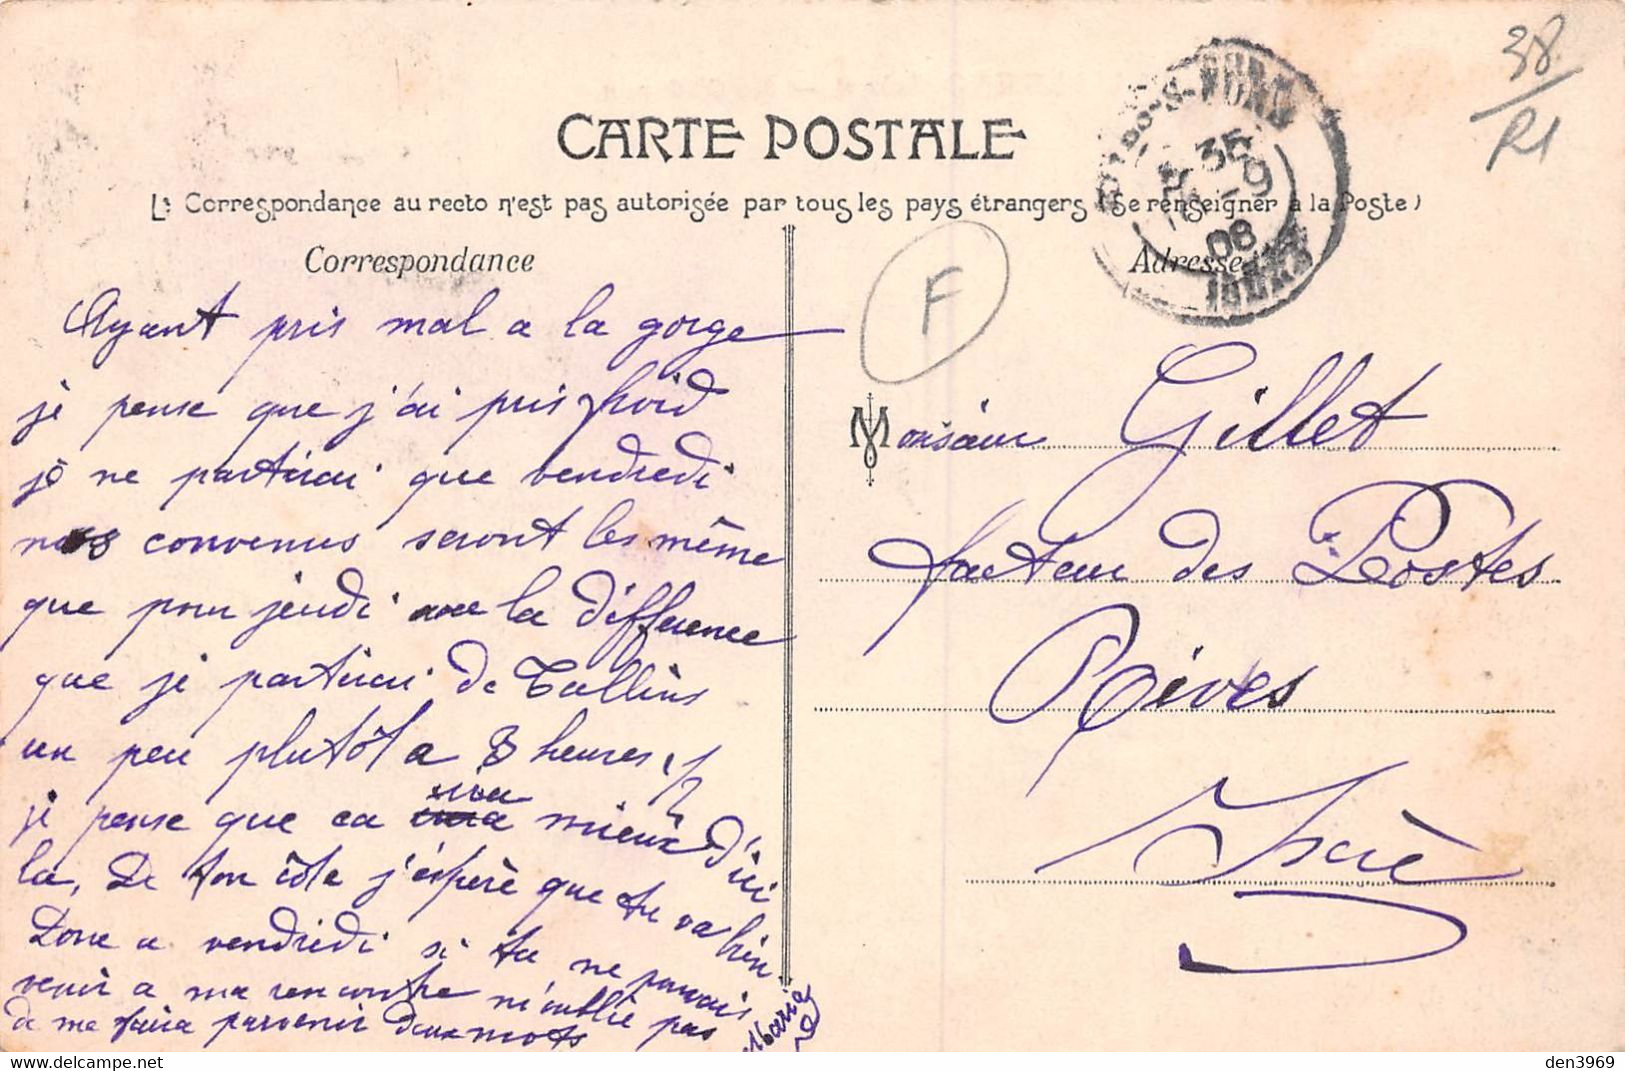 38
R1
CARTE POSTALE
La Correspondance au recto n'est pas autorisée par tous les pays étrangers (Se renseigner à la Poste)
35
9
08
ISÈRE
Correspondance
Adresse
F
Ayant pris mal a la gorge
je pense que j'ai pris froid
je ne partirai que vendredi
nos convenus seront les même
que pour jeudi avec la différence
que je partirai de Tullins
un peu plutôt a 3 heures 1/2
je pense que ca ira mieux d'ici
la, De ton côte j'éspère que tu va bien
Donc a vendredi si tu ne pouvais
venir a ma rencontre n'oublie pas
de me faire parvenir deux mots
Marie
Monsieur Gillet
facteur des Postes
Rives
Isère
den3969